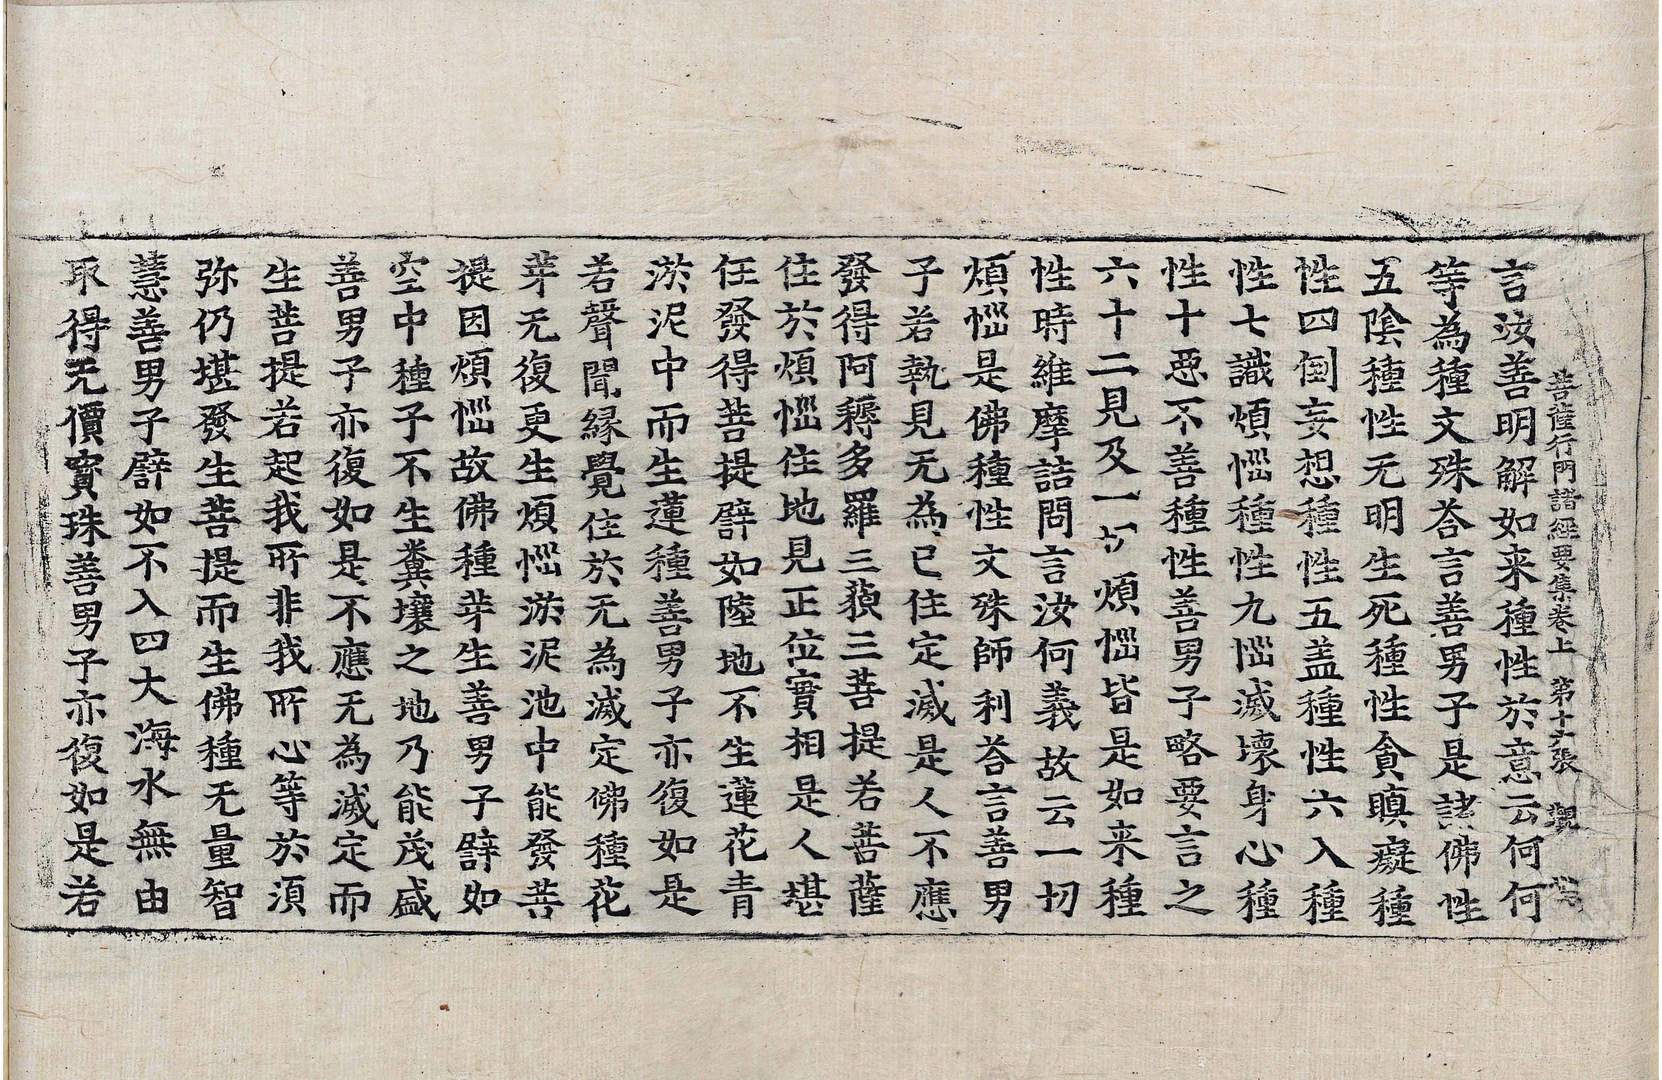 菩薩行門諸經要集卷上 第十五張 覲
言汝善明解如来種性於意云何何
等為種文殊荅言善男子是諸佛性
五隂種性无明生死種性貪瞋癡種
性四倒妄想種性五盖種性六入種
性七識煩惱種性九惱滅壞身心種
性十惡不善種性善男子略要言之
六十二見及一切煩惱皆是如来種
性時維摩詰問言汝何義故云一切
煩惱是佛種性文殊師利荅言善男
子若執見无為已住定滅是人不應
發得阿耨多羅三藐三菩提若菩薩
住於煩惱住地見正位實相是人堪
任發得菩提譬如陸地不生蓮花青
淤泥中而生蓮種善男子亦復如是
若聲聞縁覺住於无為滅定佛種花
芽无復更生煩惱淤泥池中能發菩
提因煩惱故佛種芽生善男子譬如
空中種子不生糞壤之地乃能茂盛
善男子亦復如是不應无為滅定而
生菩提若起我所非我所心等於湏
弥仍堪發生菩提而生佛種无量智
慧善男子譬如不入四大海水無由
取得无價寳珠善男子亦復如是若